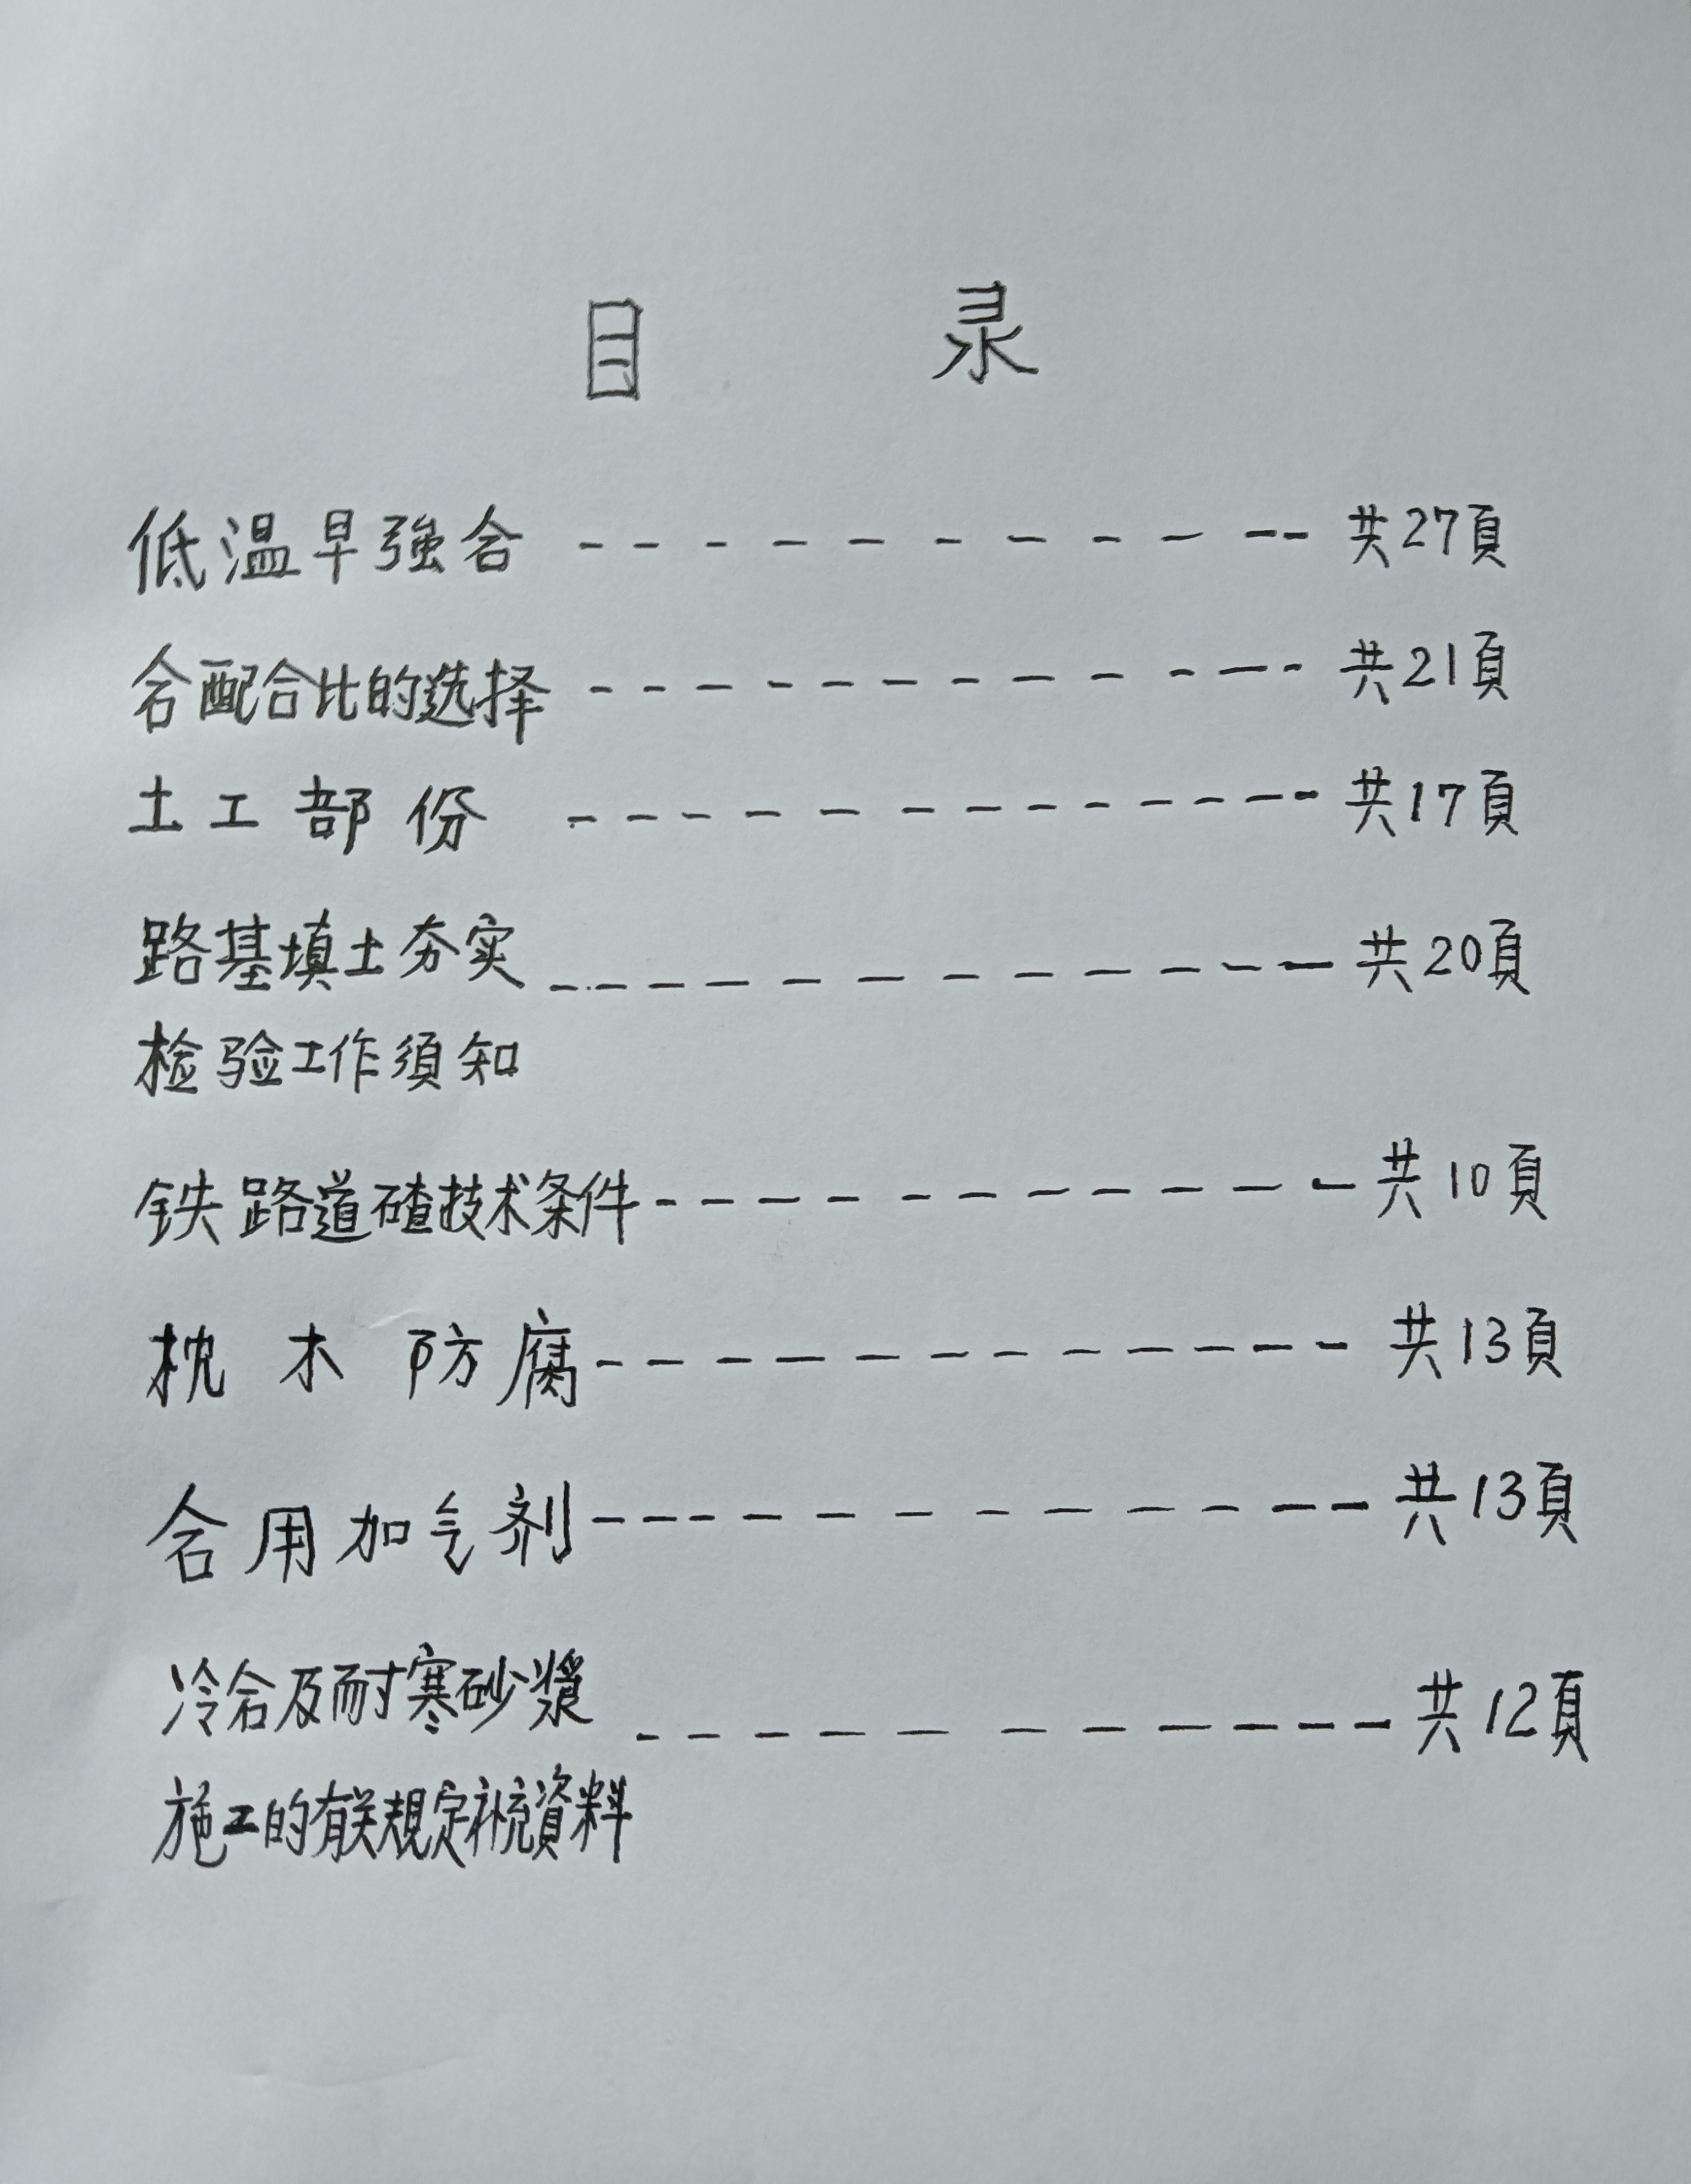 目 录
低温早強砼 ---------- 共27頁
砼配合比的选择 ---------- 共21頁
土工部份 ---------- 共17頁
路基填土夯实 ---------- 共20頁
检验工作須知
铁路道碴技术条件 ---------- 共10頁
枕木防腐 ---------- 共13頁
砼用加气剂 ---------- 共13頁
冷砼及耐寒砂漿 ---------- 共12頁
施工的有关規定补充資料